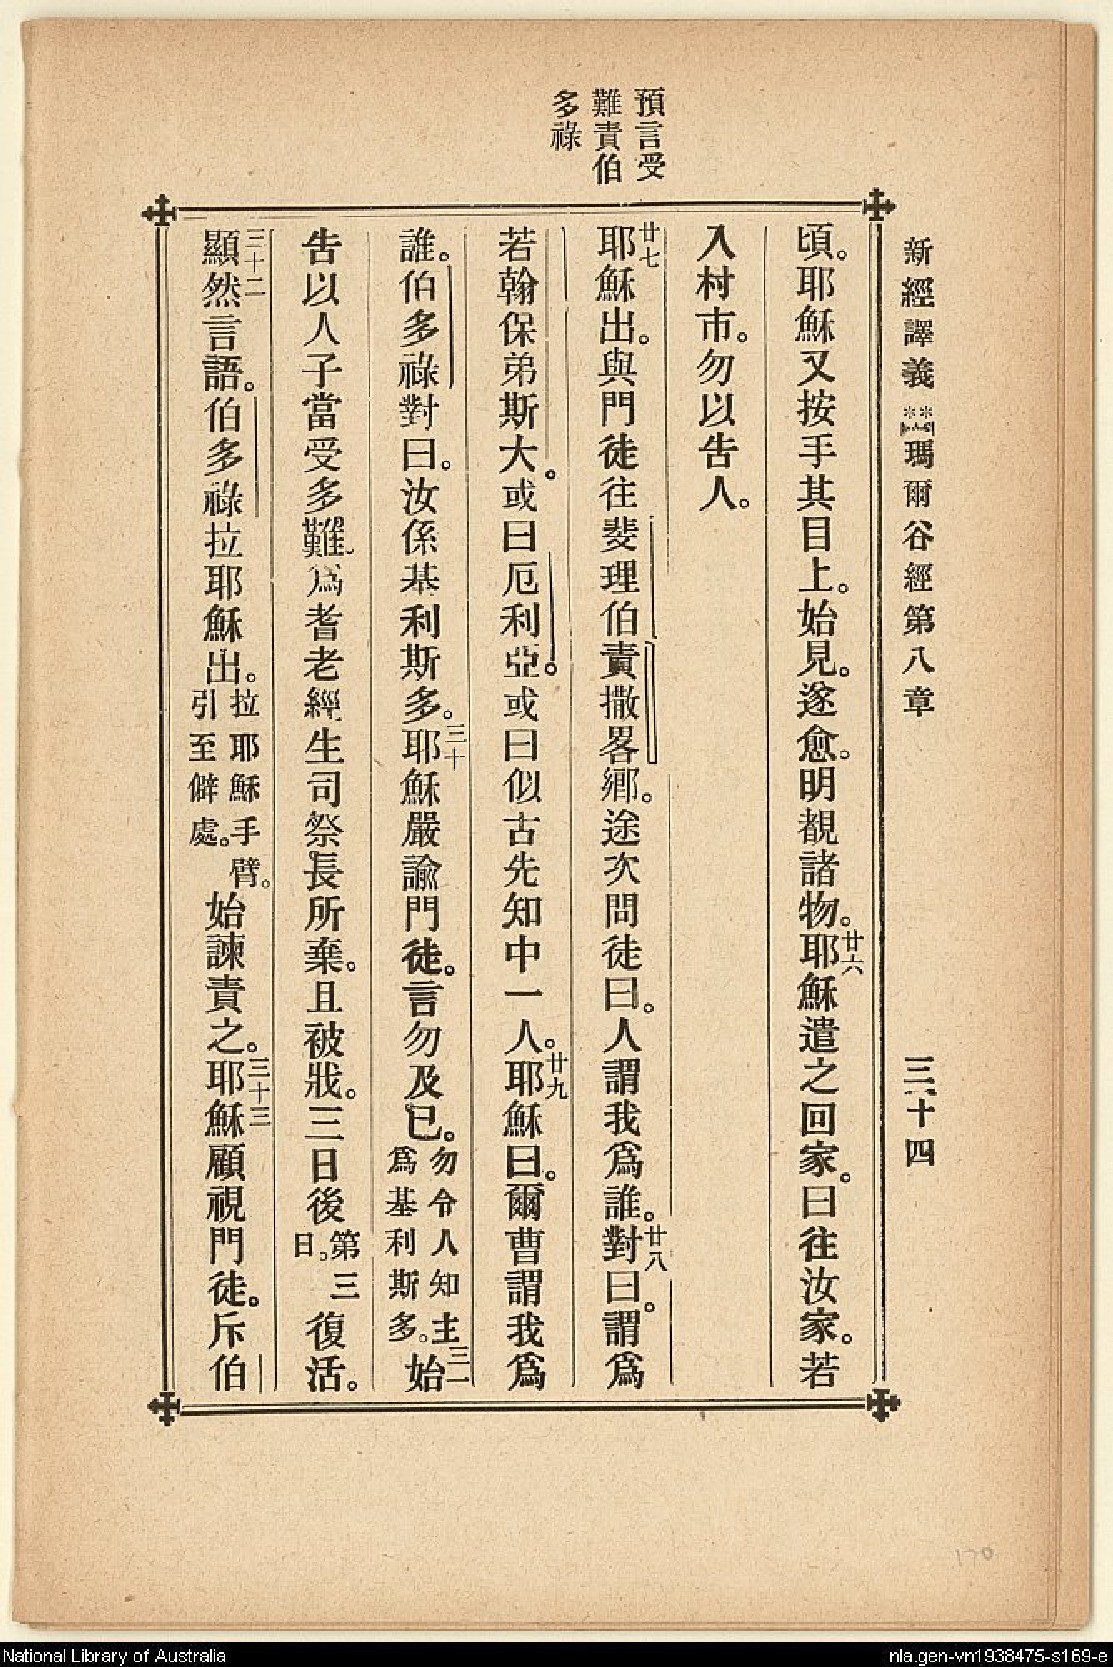 新經譯義 瑪爾谷經第八章 三十四
預言受
難責伯
多祿
頃。耶穌又按手其目上。始見。遂愈。明覩諸物。廿六耶穌遣之回家。曰往汝家。若
入村市。勿以告人。
廿七耶穌出。與門徒往斐理伯責撒畧鄉。途次問徒曰。人謂我爲誰。廿八對曰。謂爲
若翰保弟斯大。或曰厄利亞。或曰似古先知中一人。廿九耶穌曰。爾曹謂我爲
誰。伯多祿對曰。汝係基利斯多。三十耶穌嚴諭門徒。言勿及已。勿令人知主爲基利斯多。三一始
告以人子當受多難、爲耆老經生司祭長所棄。且被戕。三日後第三日。復活。
三十二顯然言語。伯多祿拉耶穌出。拉耶穌手臂。引至僻處。始諫責之。三十三耶穌顧視門徒。斥伯
170
National Library of Australia
nla.gen-vn1938475-s169-e